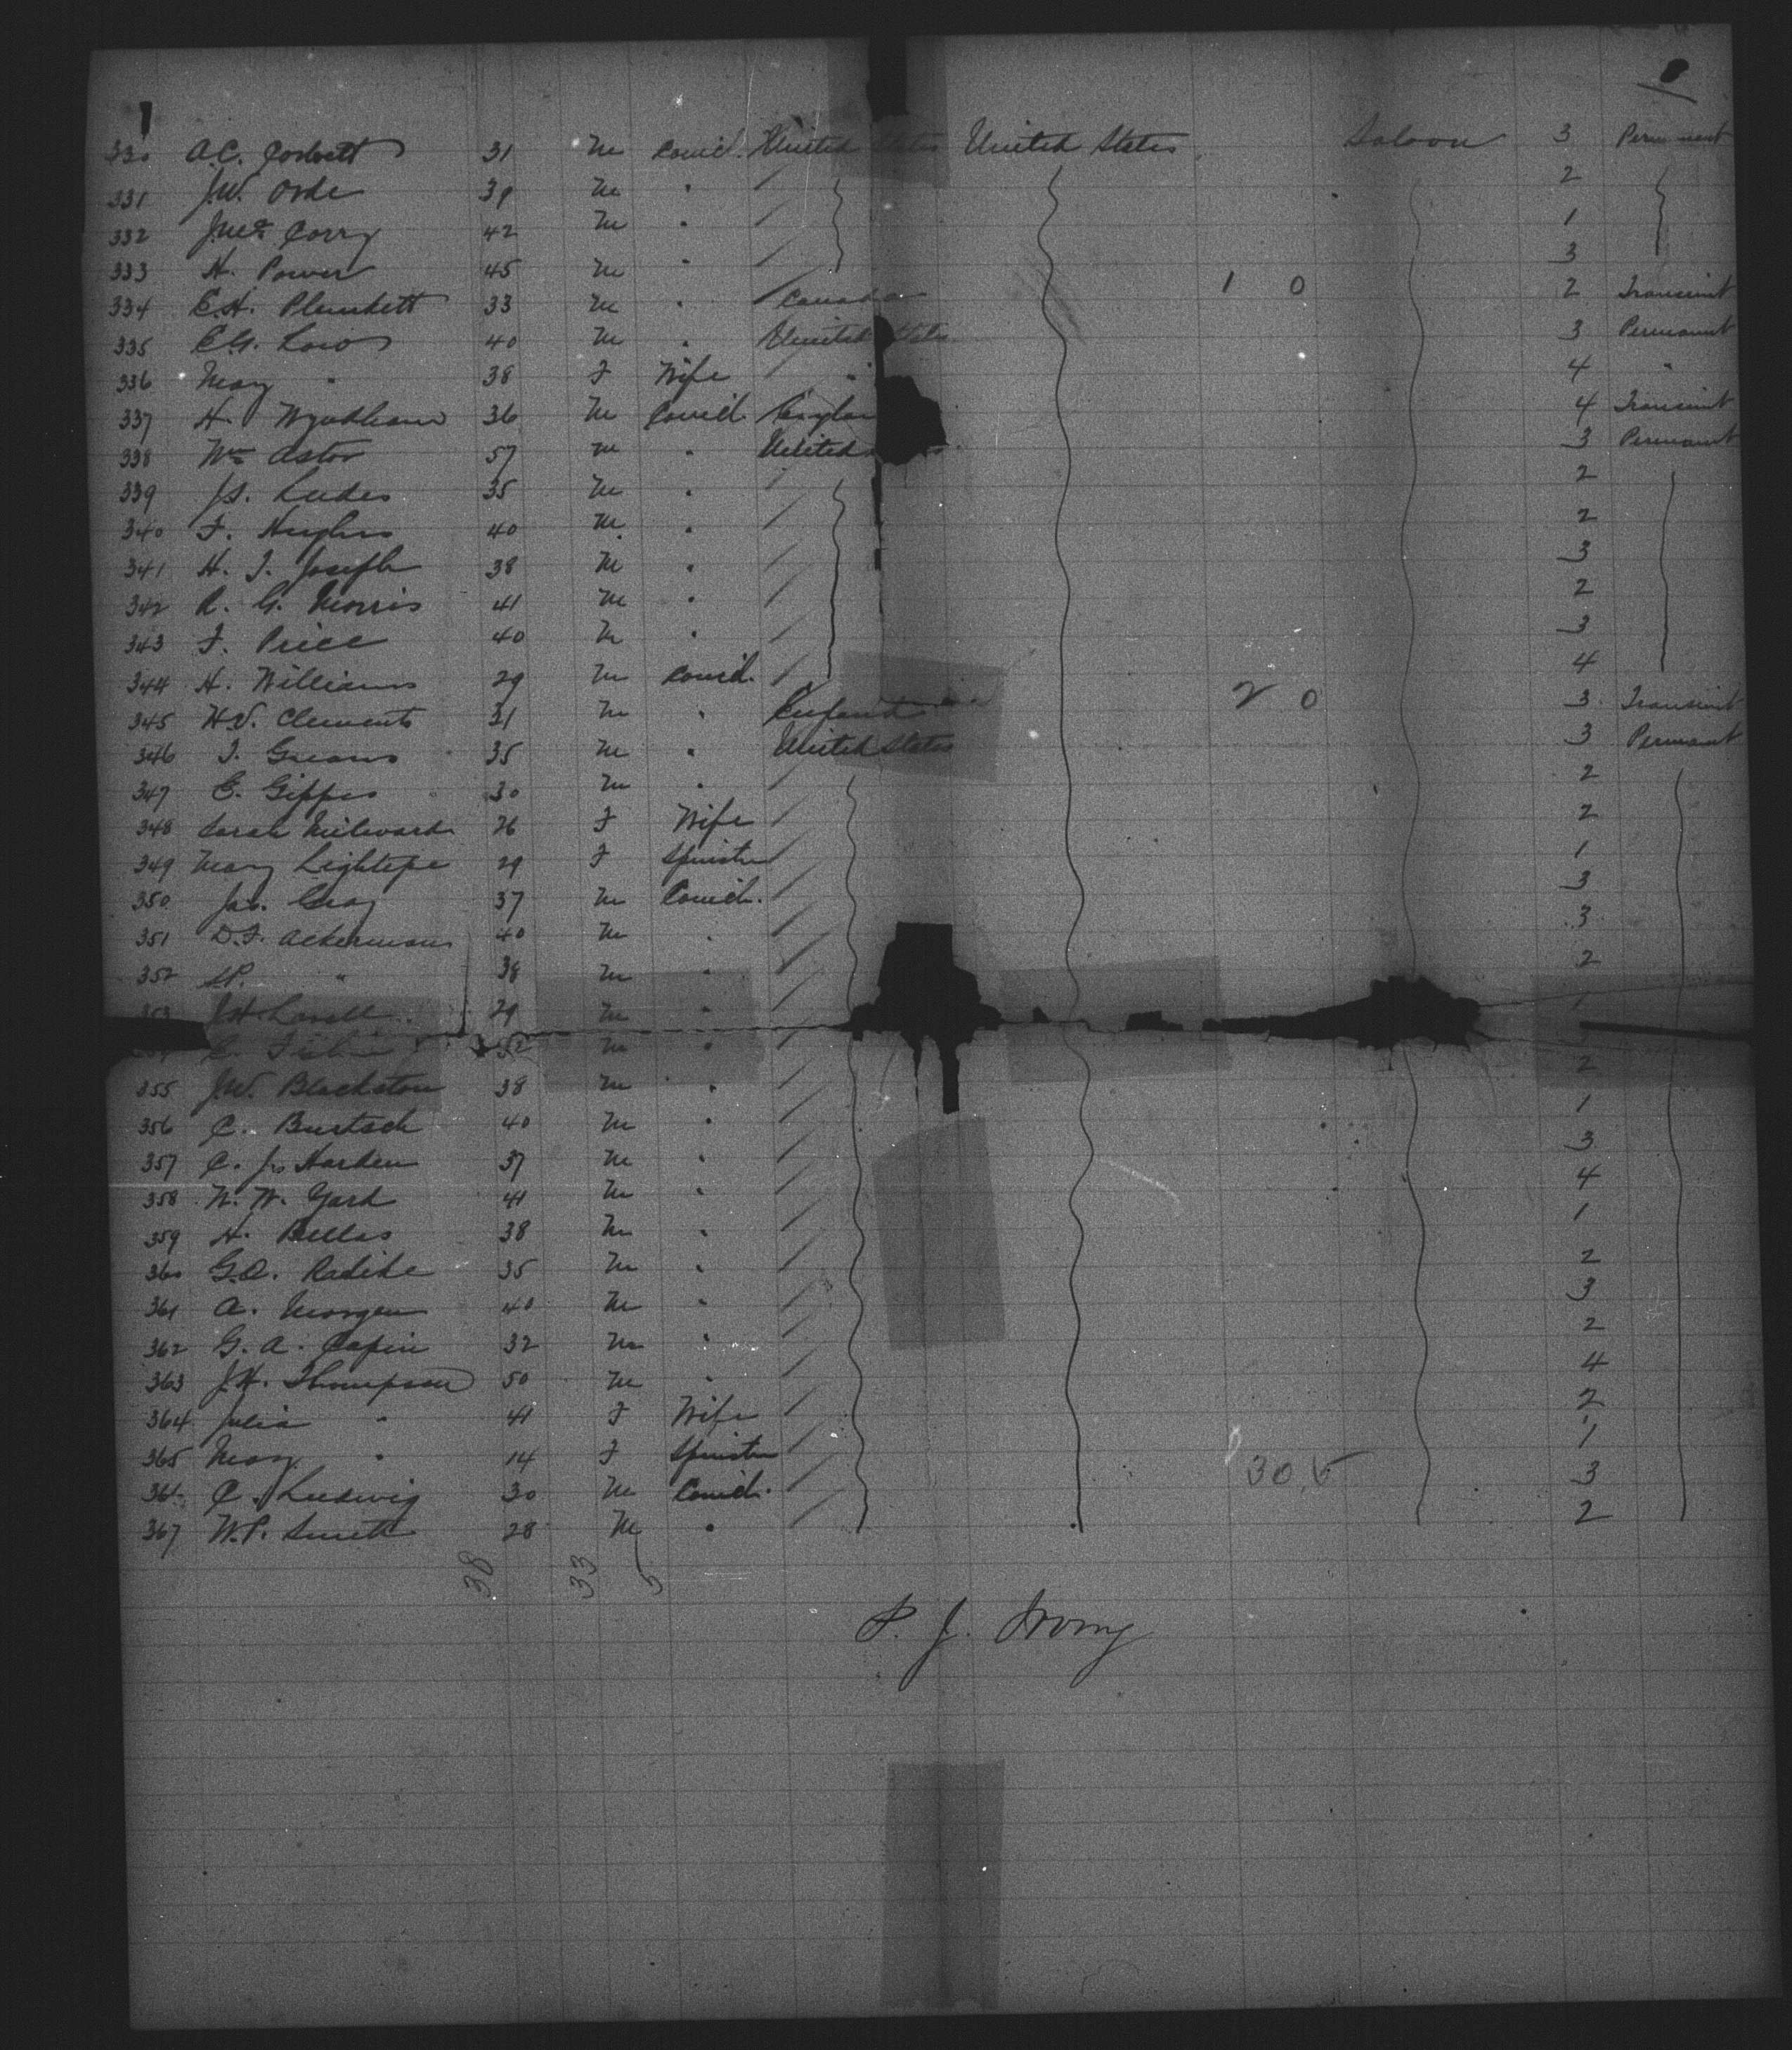 330 A.C. 31 M Comcl. United States United States Saloon 3 Permanent
331 J.W. Orde 39 M " 2
332 Corry 42 M " 1
333 H. Power 45 M " 3
334 E.H. Plunkett 33 M " Canada 1 0 2 Transient
335 E.G. Low 40 M " United States 3 Permanent
336 May " 38 F Wife " 4 "
337 H. Wyndham 36 M Comcl. 4 Transient
338 Wm Astor 57 M " United 3 Permanent
339 35 M " 2
340 F. Hughes 40 M " 2
341 H. J. Joseph 38 M " 3
342 R. G. Morris 41 M " 2
343 F. Price 40 M " 3
344 H. Williams 29 M Comcl. 4
345 Clements 31 M " England 2 0 3 Transient
346 35 M " United States 3 Permant
347 E. Gipps 30 M " 2
348 Sarah Milward 26 F Wife 2
349 Mary 29 F Spinster 1
350 Jas. Gray 37 M Comcl. 3
351 D.F. Ackerman 40 M " 3
352 S.P. " 38 M " 2
353 J.H. Lovell 29 M " 1
E. M "
355 J.W. Blackston 38 M " 2
356 C. Burtsch 40 M " 1
357 C. Harden 37 M " 3
358 N. W. Yard 41 M " 4
359 H. Bellas 38 M " 1
360 35 M " 2
361 A. Morgan 40 M " 3
362 G. A. 32 M " 2
363 J.H. Thompson 50 M " 4
364 Julia " 41 F Wife 2
365 Mary " 14 F Spinster 1
366 C. Ludwig 30 M Comcl. 30 5 3
367 W.P. Smith 28 M " 2
38 33 5